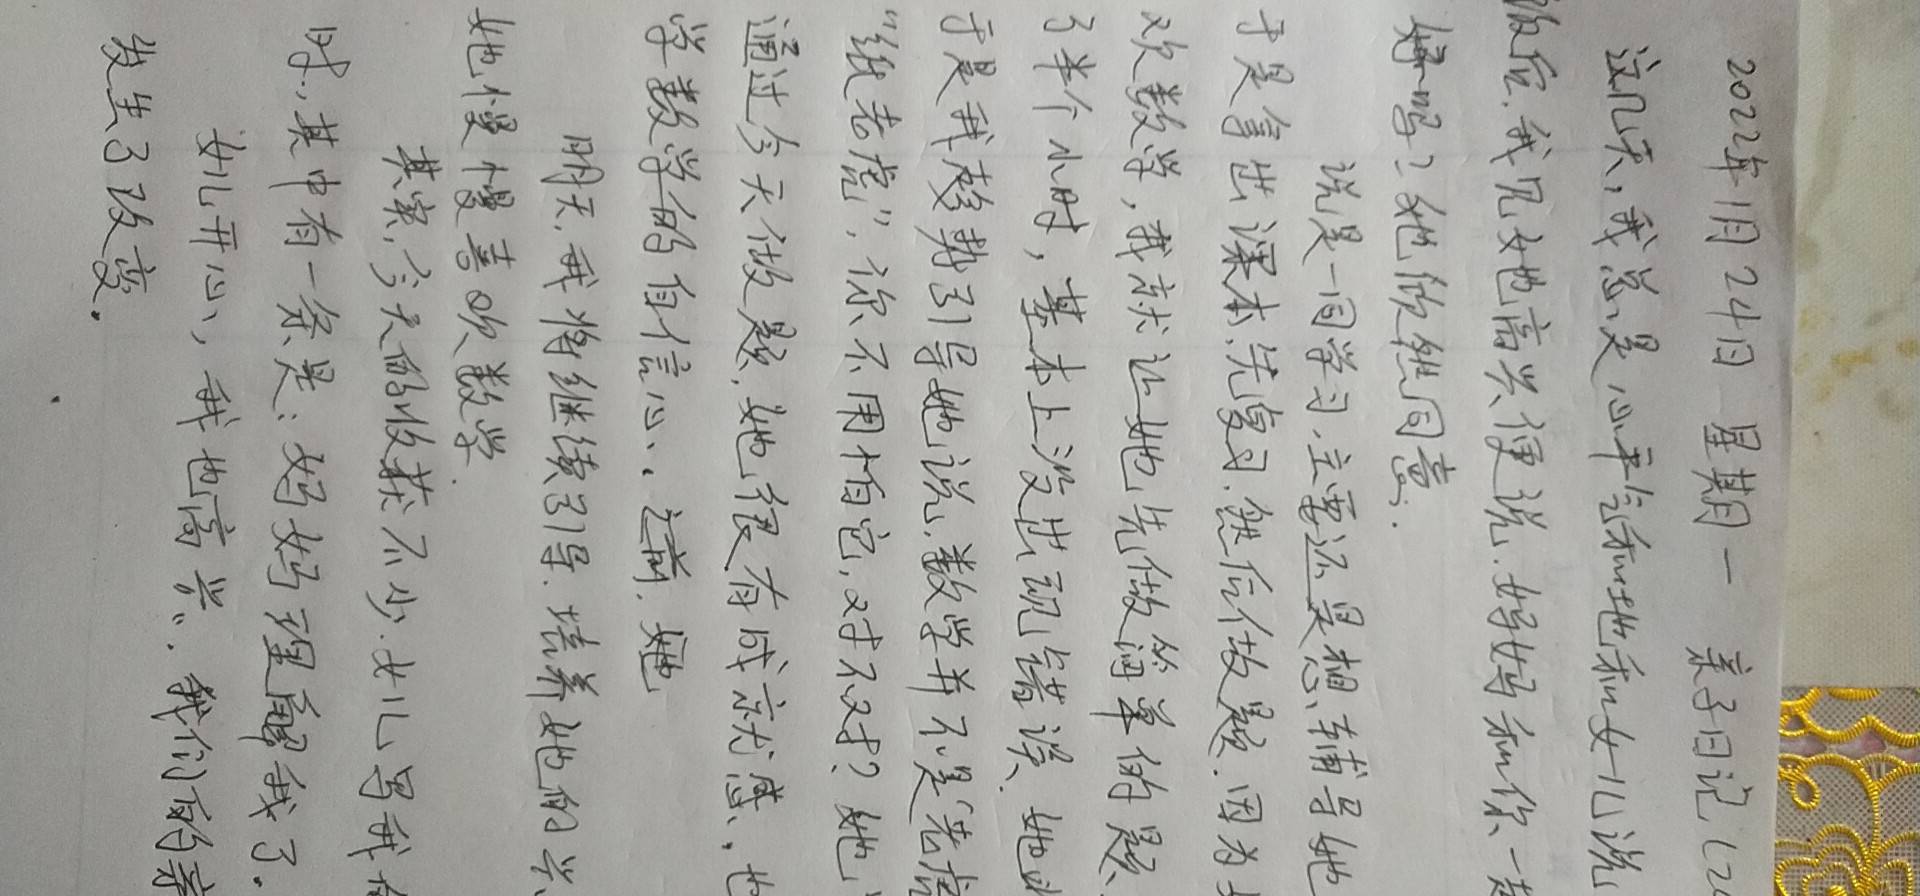 2022年1月24日 星期一 亲子日记(2
这几天,我总是心平气和地和女儿说
饭后,我见她高兴便说,妈妈和你一起
好吗?她欣然同意.
说是一同学习,主要还是想辅导她
于是拿出课本,先复习,然后做题.因为
欢数学,我就让她先做简单的题.
了半个小时,基本上没出现错误.她
于是我趁势引导她说,数学并不是“老虎
“纸老虎”,你不用怕它,对不对?她
通过今天做题,她很有成就感、也
学数学的自信心.之前,她
明天,我将继续引导.培养她的兴
她慢慢喜欢数学.
其实,今天的收获不少,女儿写我
时,其中有一条是:妈妈理解我了.
女儿开心,我也高兴.我们的亲
发生了改变.